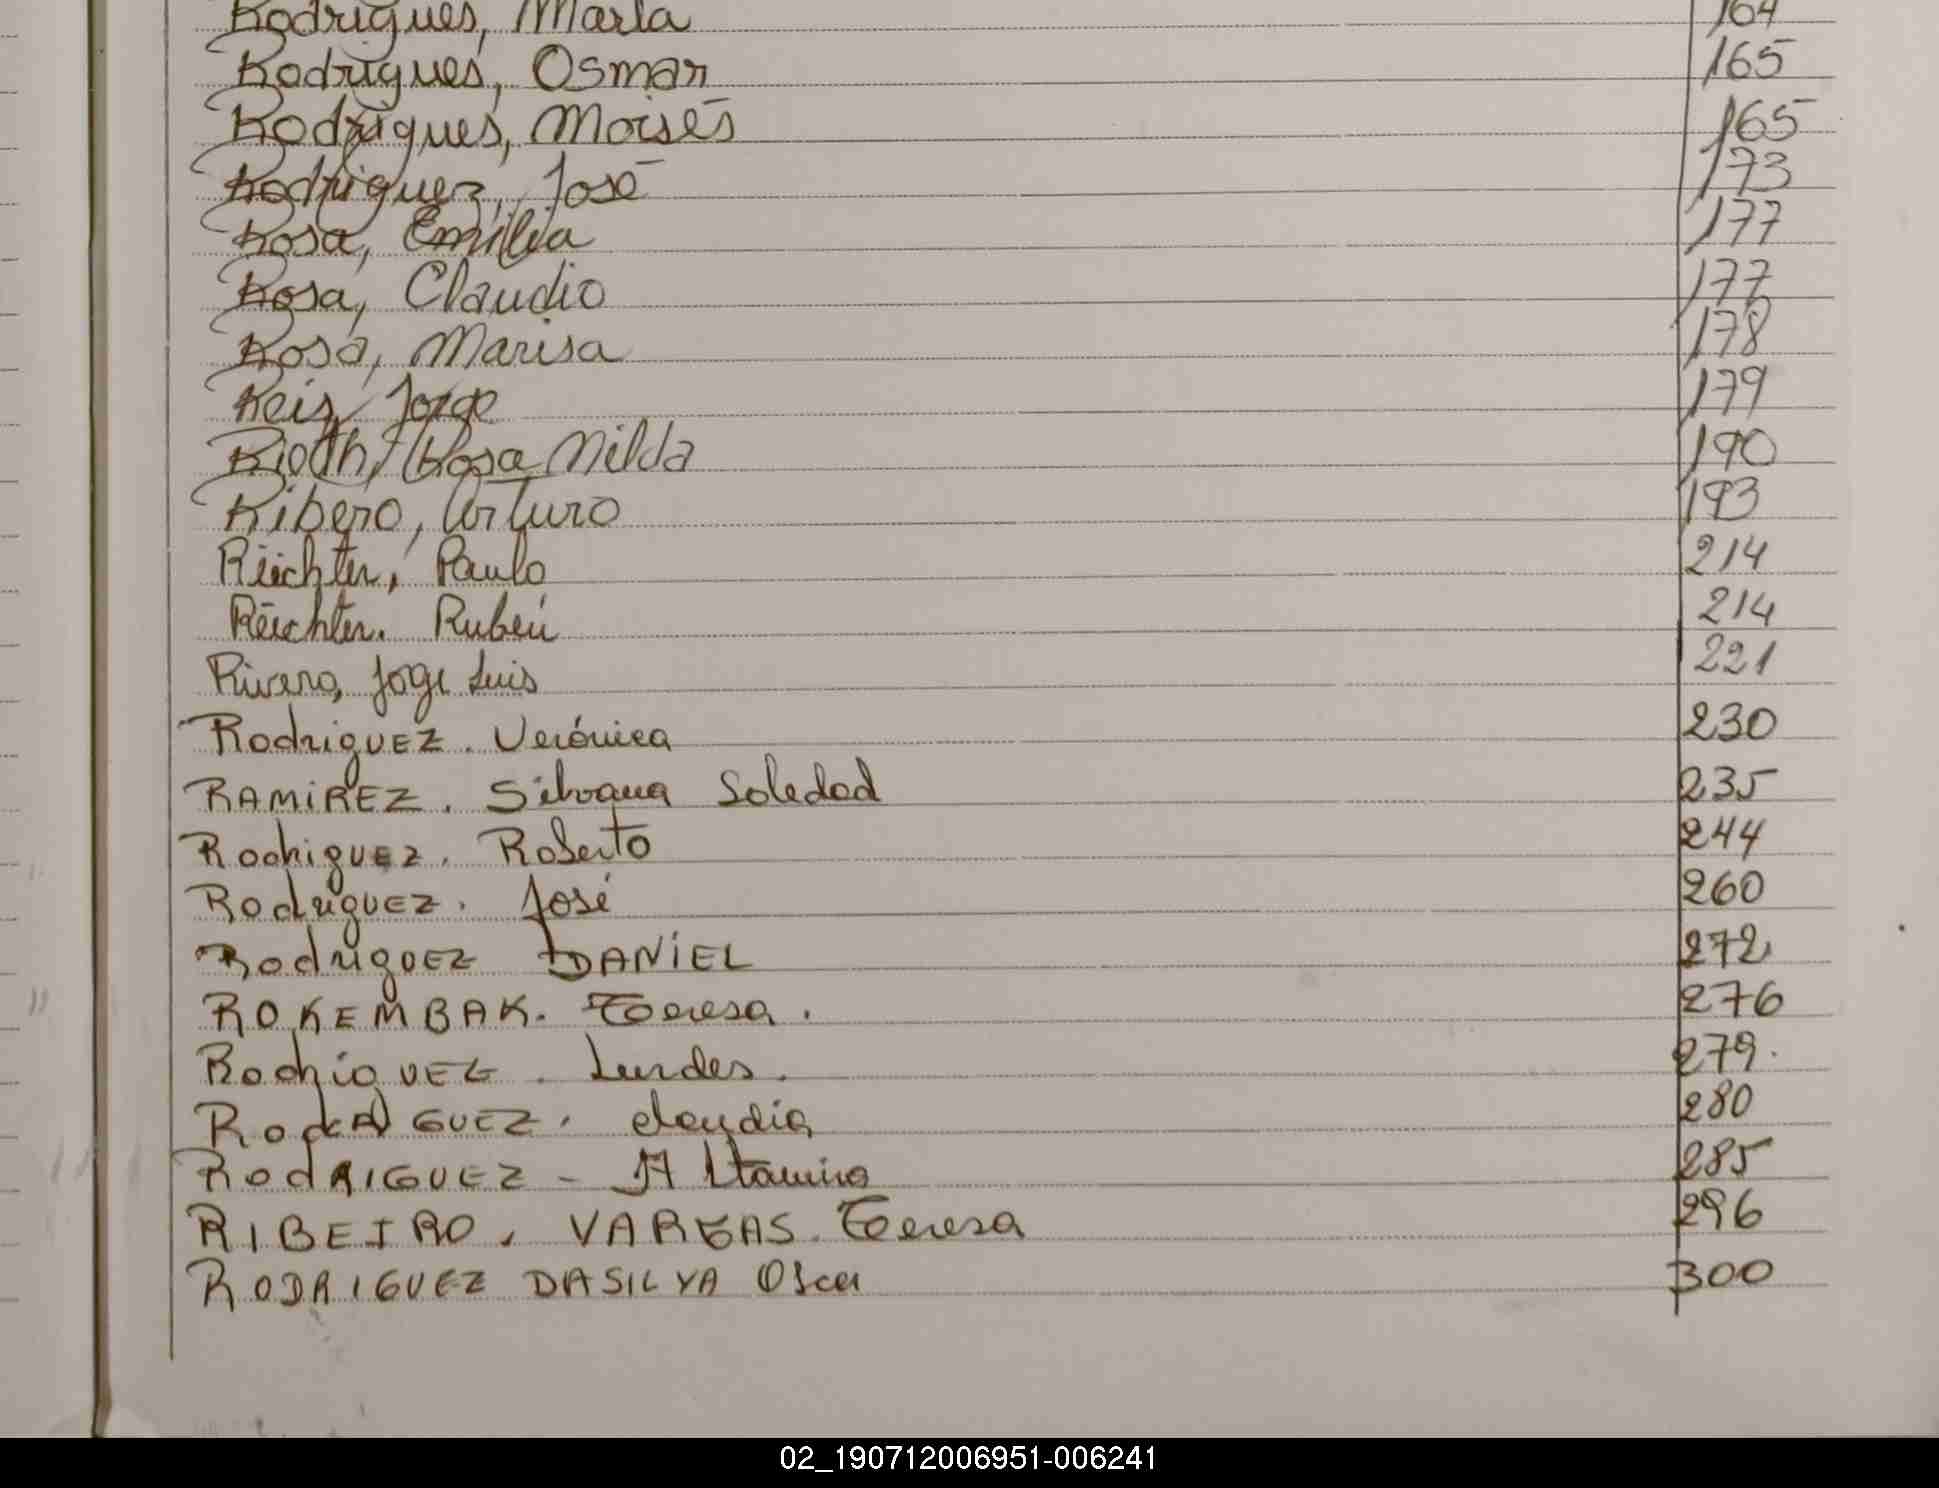 Rodrigues, Marla 164
Rodrigues, Osmar 165
Rodrigues, Moisés 165
Rodriguez, José 173
Rosa, Emilia 177
Rosa, Claudio 177
Rosa, Marisa 178
Reis, Jorge 179
Rioth, Rosa Nilda 190
Ribero, Arturo 193
Riichter, Paulo 214
Reichter. Rubén 214
Rivero, Jorge Luis 221
Rodriguez. Verónica 230
RAMIREZ. Silvana Soledad 235
Rodriguez. Roberto 244
Rodriguez. José 260
Rodriguez DANIEL 272
ROKEMBAK. Teresa. 276
Rodriguez. Lurdes. 279.
RodRIGUEZ. Claudia 280
RodRIGUEZ - Altamira 285
RIBEIRO, VARGAS. Teresa 296
RODRIGUEZ DASILVA Oscar 300
02_190712006951-006241